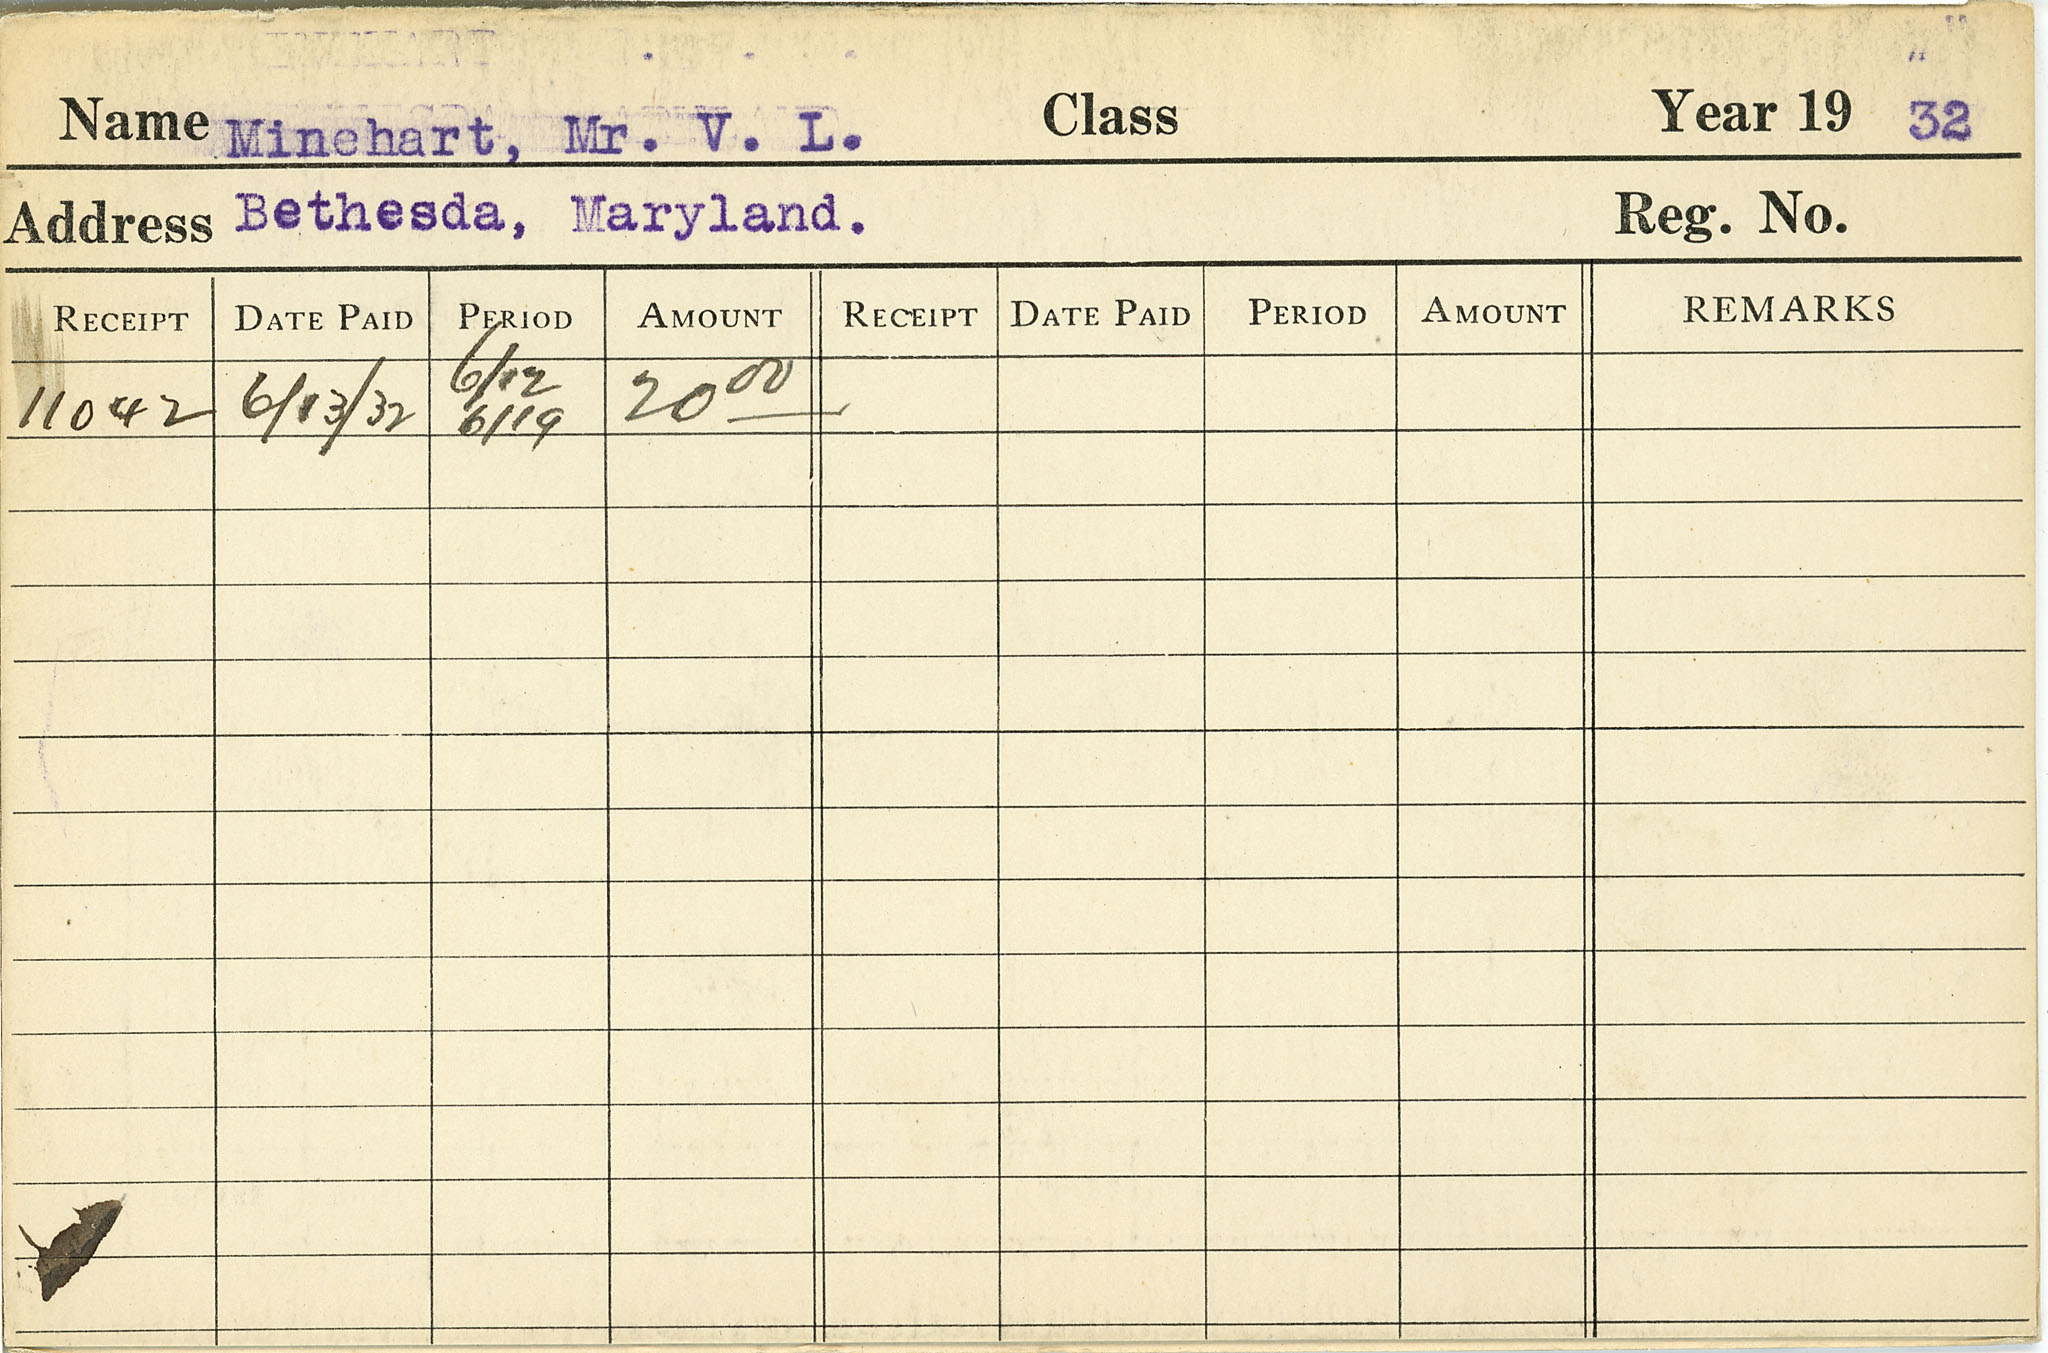 Name Minehart, Mr. V. L. Class Year 19 32
Address Bethesda, Maryland. Reg. No.
RECEIPT DATE PAID PERIOD AMOUNT RECEIPT DATE PAID PERIOD AMOUNT REMARKS
11042 6/13/32 6/12 20 00
6/19